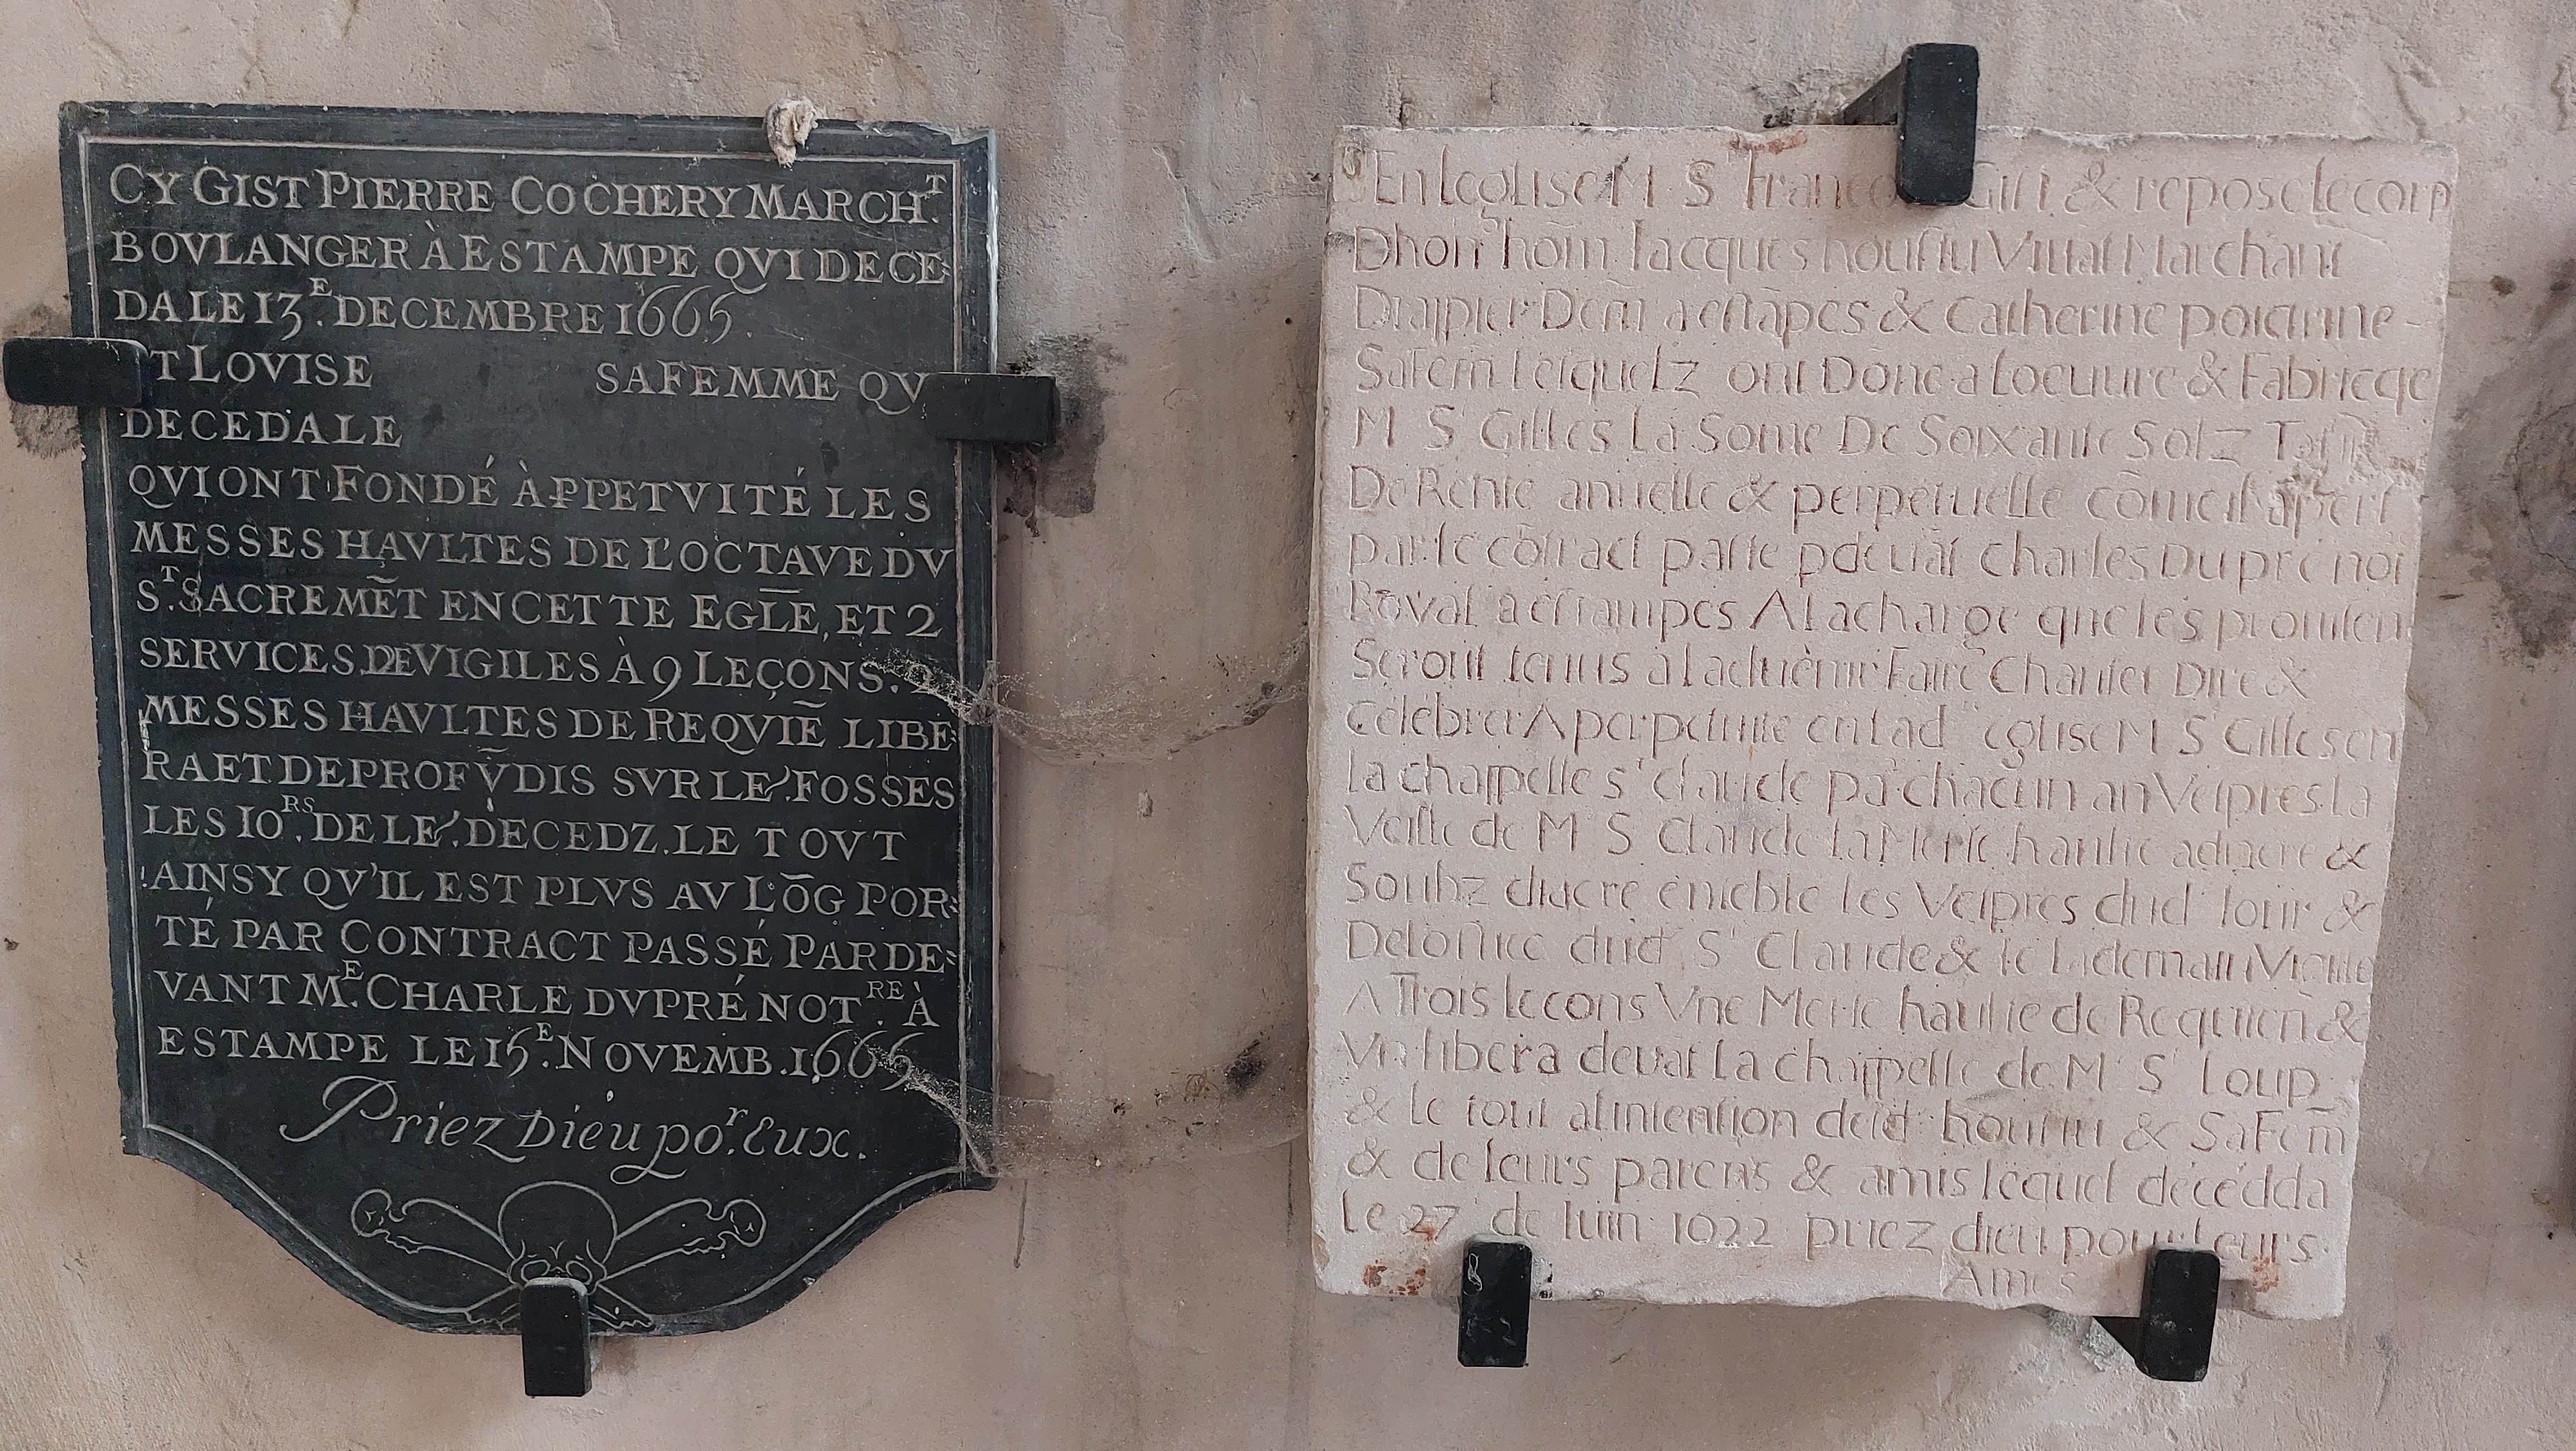 CY GIST PIERRE COCHERY MARCH.T
BOVLANGER À ESTAMPE QVI DECE=
DA LE 13.E DECEMBRE 1665.
T LOVISE SA FEMME QV
DECEDA LE
QVI ONT FONDÉ À PPETVITÉ LES
MESSES HAVLTES DE L'OCTAVE DV
S.T SACREMĒT EN CETTE EGLE, ET 2
SERVICES DE VIGILES À 9 LEÇONS. 2
MESSES HAVLTES DE REQVIĒ LIBE=
RA ET DE PROFV̄DIS SVR LE. FOSSES
LES IO.RS DE LE. DÈCEDZ. LE TOVT
AINSY QV'IL EST PLVS AV LŌG POR=
TÉ PAR CONTRACT PASSÉ PARDE=
VANT M.E CHARLE DVPRÉ NOT.RE À
ESTAMPE LE 15.E NOVEMB. 1665
Priez Dieu po.r eux.
En leglise M S Giſt & repose le corp
Dhon hom̄ Iacques Marchant
Demː a eſtāpes & Catherine poictrine
Sa Fem̄ leſquelz ont Done a Loeuure & Fabricqe
M S Gilles La Some De Soixante Solz
De Rente annuelle & perpetuelle cōme il apert
par le cōtract paſſe pdeuāt Charles Dupré not
Royal a eſtampes A la charge que les
Seront tenus a laduenir Faire Chanter Dire &
Celebrer A perpetuite en lad eglise M S Gilles en
la chappelle s claude chacun an Veſpres la
Veille de M S Claude la Meſſe haulte a diacre &
Soubz diacre les Veſpres dud Iour &
De dud S Claude & le lādemain Vigille
A Trois lecons Vne Meſſe haulte de Requien &
Vn libera deuāt La chappelle de M S Loup
& le tout a lintention deſd & Sa Fem̄
& de leurs parens & amis lequel décédda
le 27 de Iuin 1622 priez dieu pour leurs
Ames